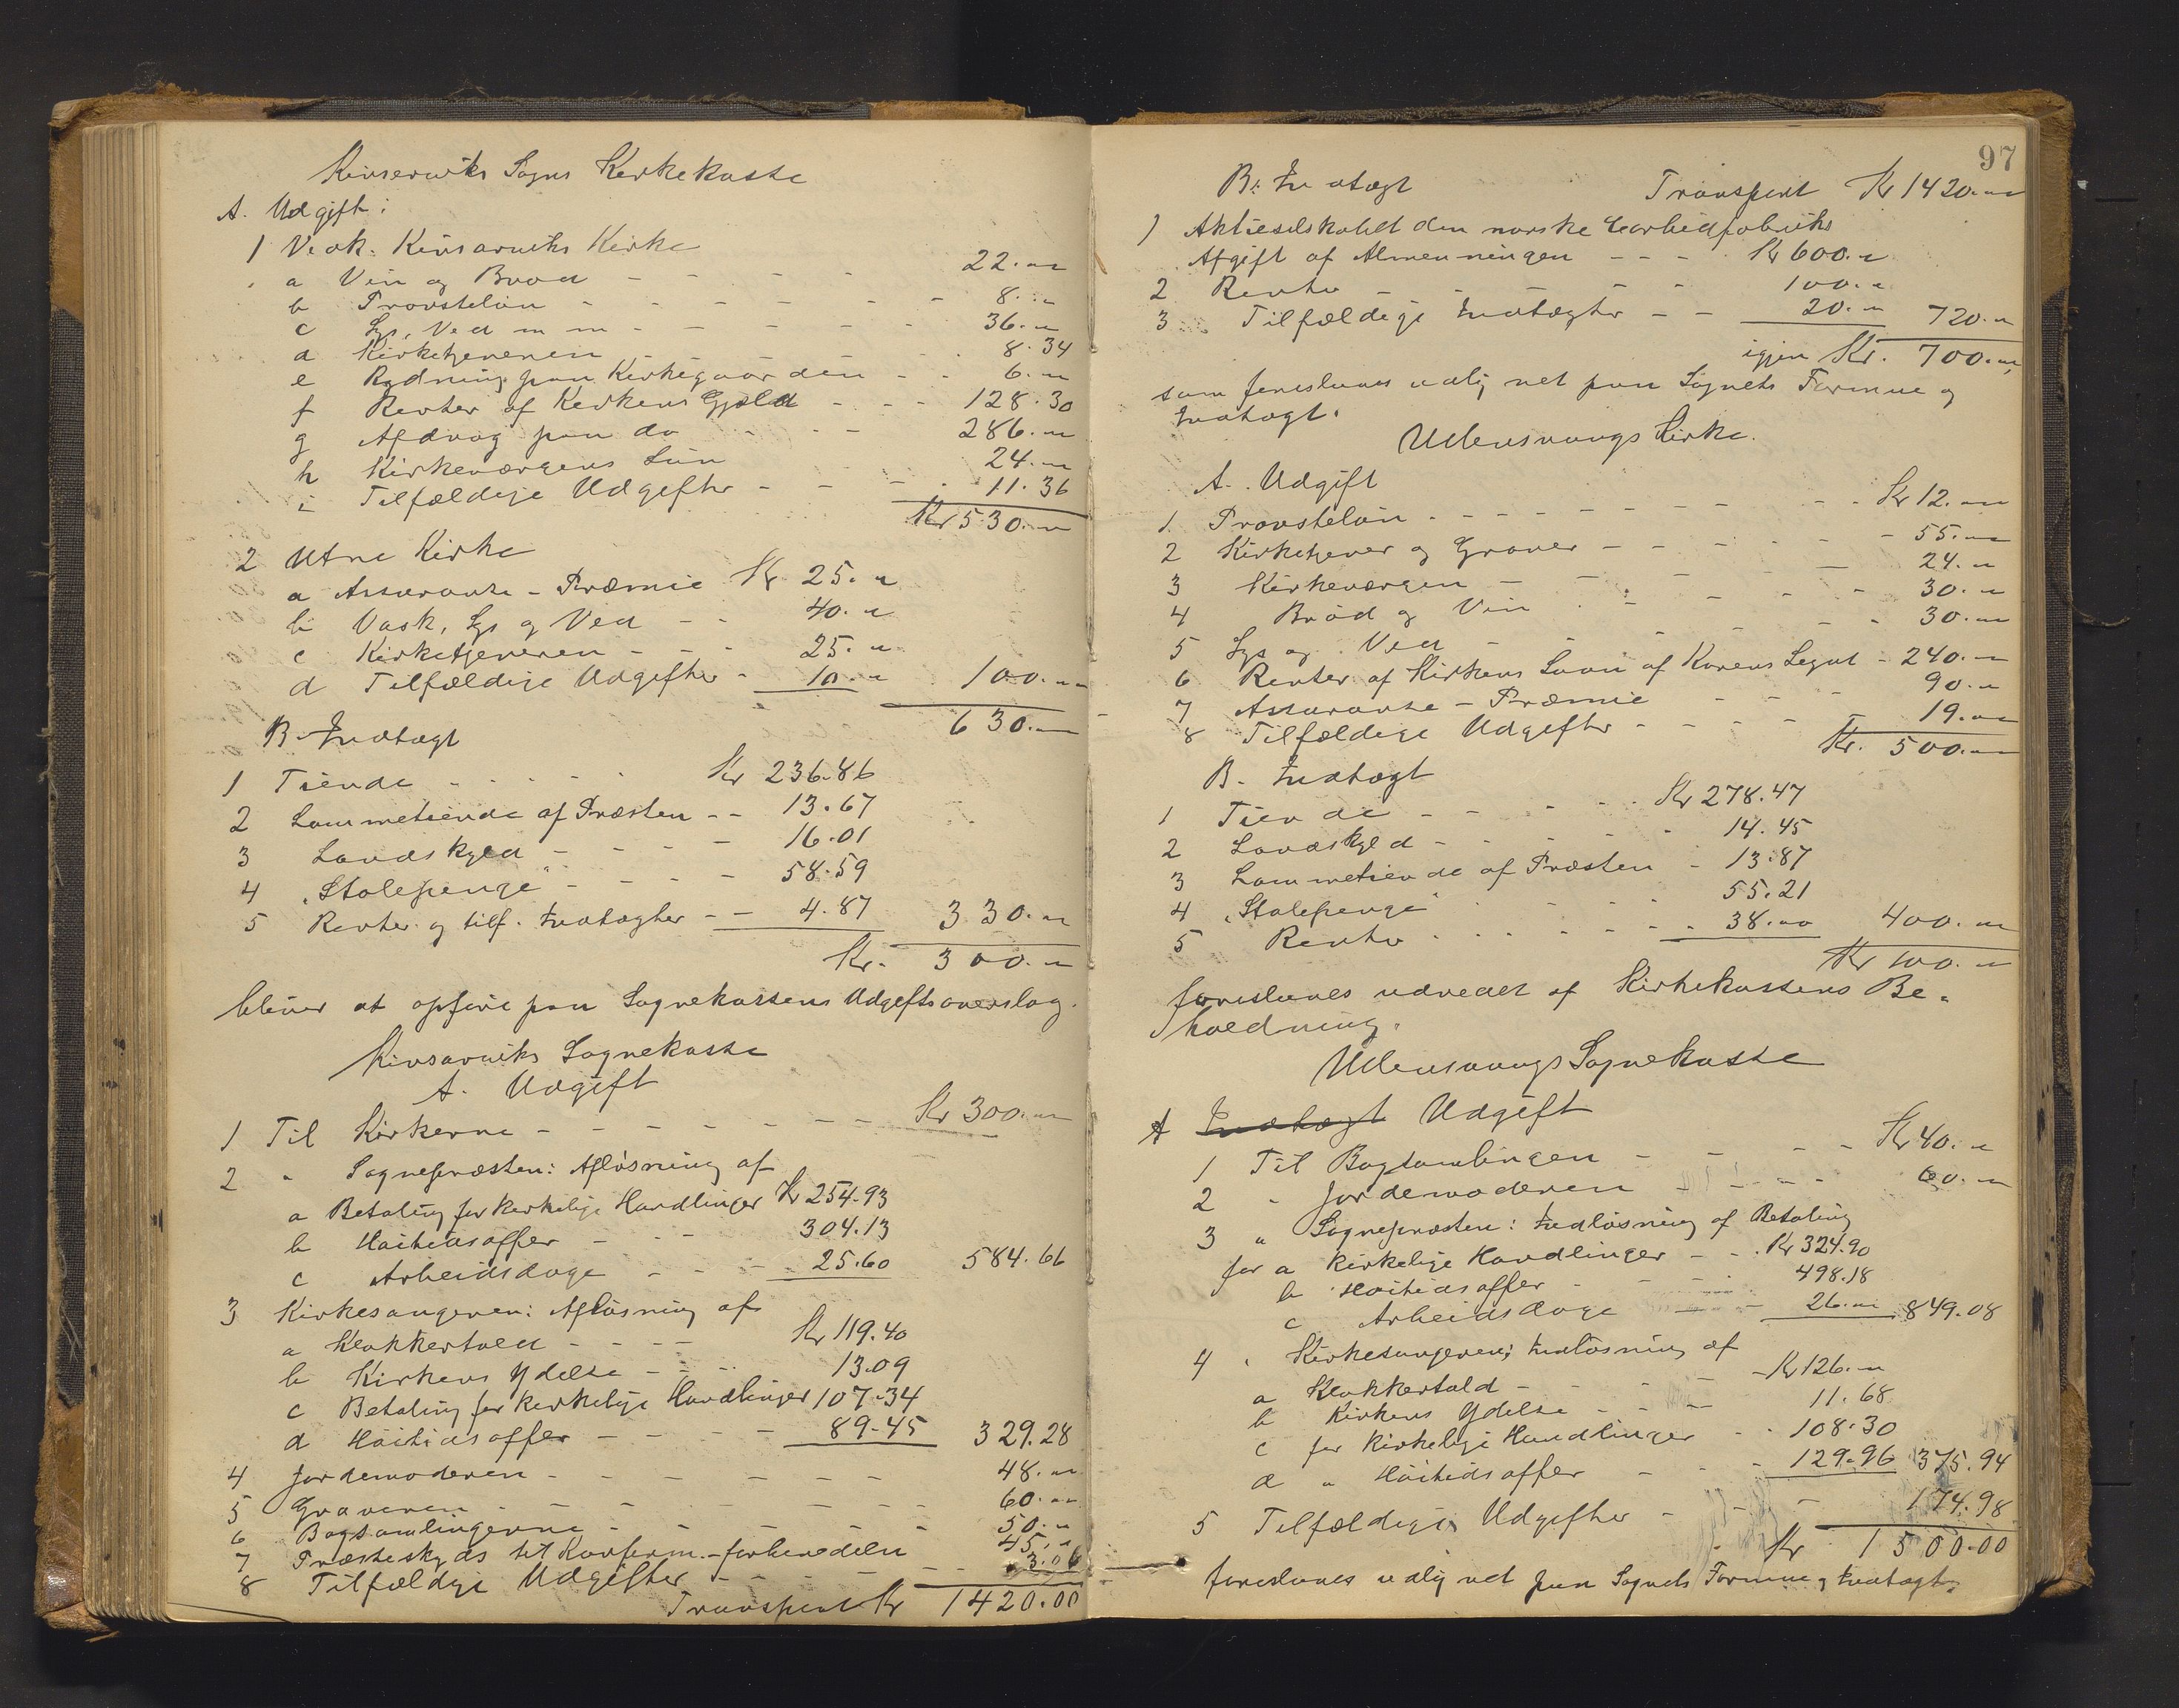 Kinserviks Sogns Kirkekasse
A. Udgift:
1 Vedk. Kinserviks Kirke
a Vin og Brød - - - - 22.„
b Provsteløn - - - - 8.„
c Lys, Ved m m - - - - 36.„
d Kirketjeneren - - 8.34
e Rydning paa Kirkegaarden - - 6.„
f Renter af Kirkens Gjæld - - - 128.30
g Afdrag paa do - - - 286.„
h Kirkeværgens Løn 24.„
i Tilfældige Udgifter - - - 11.36
Kr 530.„
2 Utne Kirke
a Assurance-Præmie Kr 25.„
b Vask, Lys og Ved - - 40.„
c Kirketjeneren - - - 25.„
d Tilfældige Udgifter - 10.„ 100.„
630.„
B Indtægt
1 Tiende - - - - - Kr 236.86
2 Lammetiende af Præsten - - 13.67
3 Landskyld - - - - 16.01
4 „Stolepenge“ - - - - 58.59
5 Renter og tilf. Indtægter - - 4.87 330.„
Kr. 300.„
bliver at opføre paa Sognekassens Udgiftsoverslag.
Kinserviks Sognekasse
A. Udgift
1 Til Kirkerne - - - - - - - Kr 300.„
2 „ Sognepræsten: Afløsning af
a Betaling for kirkelige Handlinger Kr 254.93
b Høitidsoffer - - - 304.13
c Arbeidsdage - - - 25.60 584.66
3 Kirkesangeren: Afløsning af
a Klokkertold - - - - Kr 119.40
b Kirkens Ydelse - - - 13.09
c Betaling for kirkelige Handlinger 107.34
d Høitidsoffer - - - - 89.45 329.28
4 Jordemoderen - - - - - - 48.„
5 Graveren - - - - - - - 60.„
6 Bogsamlingerne - - - - - 50.„
7 Præsteskyds til Konfirm.-forberedelse 45.„
8 Tilfældige Udgifter - - - - - 3.06
Transport Kr 1420.00
97
B: Indtægt Transport Kr 1420.„
1 Aktieselskabet den norske Carbidfabriks
Afgift af Almenningen - - - Kr 600.„
2 Renter - - - - - 100.„
3 Tilfældige Indtægter - - 20.„ 720.„
igjen Kr. 700.„
som foreslaaes udlignet paa Sognets Formue og
Indtægt.
Ullensvangs Kirke.
A. Udgift
1. Provsteløn - - - - - - - - Kr 12.„
2 Kirketjener og Graver - - - - - 55.„
3 Kirkeværgen - - - - 24.„
4 Brød og Vin - - - - - 30.„
5 Lys og Ved - - - - - 30.„
6 Renter af Kirkens Laan af Legat - 240.„
7 Assurance-Præmie - - - 90.„
8 Tilfældige Udgifter - - - - - 19.„
Kr. 500.„
B. Indtægt
1 Tiende - - - - - Kr 278.47
2 Landskyld - - - - - 14.45
3 Lammetiende af Præsten - 13.87
4 „Stolepenge“ - - - - 55.21
5 Renter - - - - - - 38.00 400.„
Kr 100.„
foreslaaes udredet af Kirkekassens Be-
holdning.
Ullensvangs Sognekasse
A Indtægt Udgift
1 Til Bogsamlingen - - - - Kr 40.„
2 „ Jordemoderen - - - - - 60.„
3 „ Sognepræsten: Indløsning af Betaling
for a kirkelige Handlinger - - Kr 324.90
b Høitidsoffer - - - 498.18
c Arbeidsdage - - 26.„ 849.08
4 „ Kirkesangeren; Indløsning af
a Klokkertold - - - - Kr 126.„
b Kirkens Ydelse - - - 11.68
c for kirkelige Handlinger - - 108.30
d „ Høitidsoffer - - - 129.96 375.94
5 Tilfældige Udgifter - - - 174.98
Kr 1500.00
foreslaaes udlignet paa Sognets Formue og Indtægt.